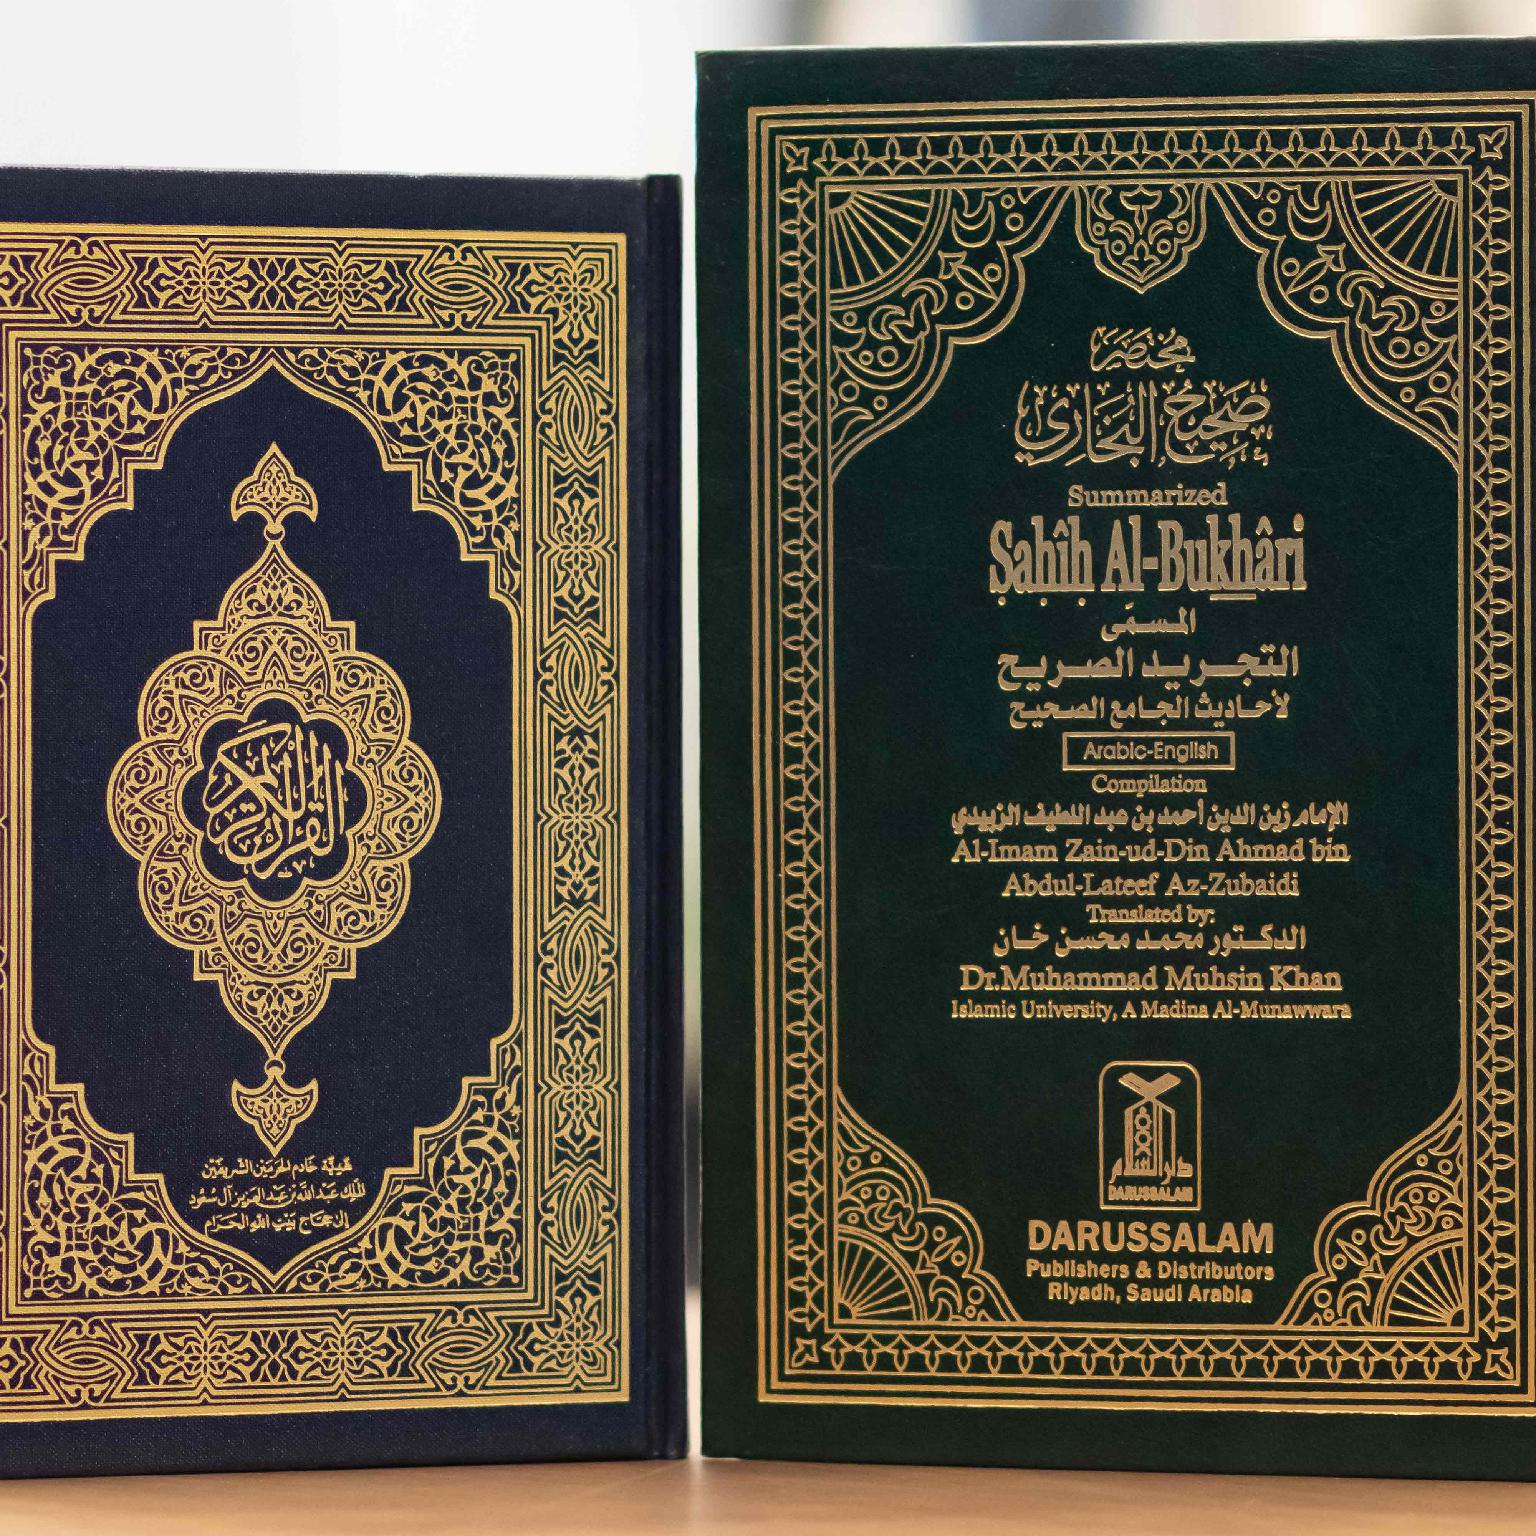 القرآن الكريم
هدية خادم الحرمين الشريفين
الملك عبد الله بن عبد العزيز آل سعود
إلى حجاج بيت الله الحرام
مُخْتَصَر
صَحِيحُ البُخَارِي
Summarized
Ṣaḥîḥ Al-Bukhâri
المسمّى
التجريد الصريح
لأحاديث الجامع الصحيح
Arabic-English
Compilation
الإمام زين الدين أحمد بن عبد اللطيف الزبيدي
Al-Imam Zain-ud-Din Ahmad bin
Abdul-Lateef Az-Zubaidi
Translated by:
الدكتور محمد محسن خان
Dr.Muhammad Muhsin Khan
Islamic University, A Madina Al-Munawwara
دار السلام
DARUSSALAM
DARUSSALAM
Publishers & Distributors
Riyadh, Saudi Arabia